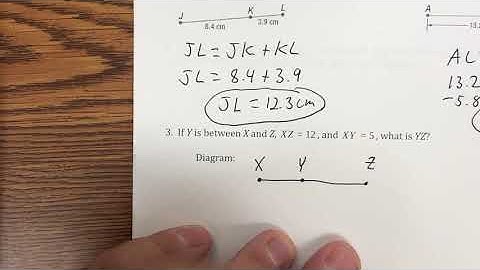 J K L
8.4 cm 3.9 cm
JL = JK + KL
JL = 8.4 + 3.9
JL = 12.3 cm
A
AL
13.2
-5.8
3. If Y is between X and Z, XZ = 12, and XY = 5, what is YZ?
Diagram:
X Y Z